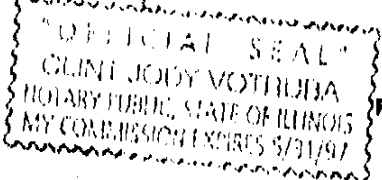 "OFFICIAL SEAL"
CLINT JODY VOTRUBA
NOTARY PUBLIC, STATE OF ILLINOIS
MY COMMISSION EXPIRES 5/31/97